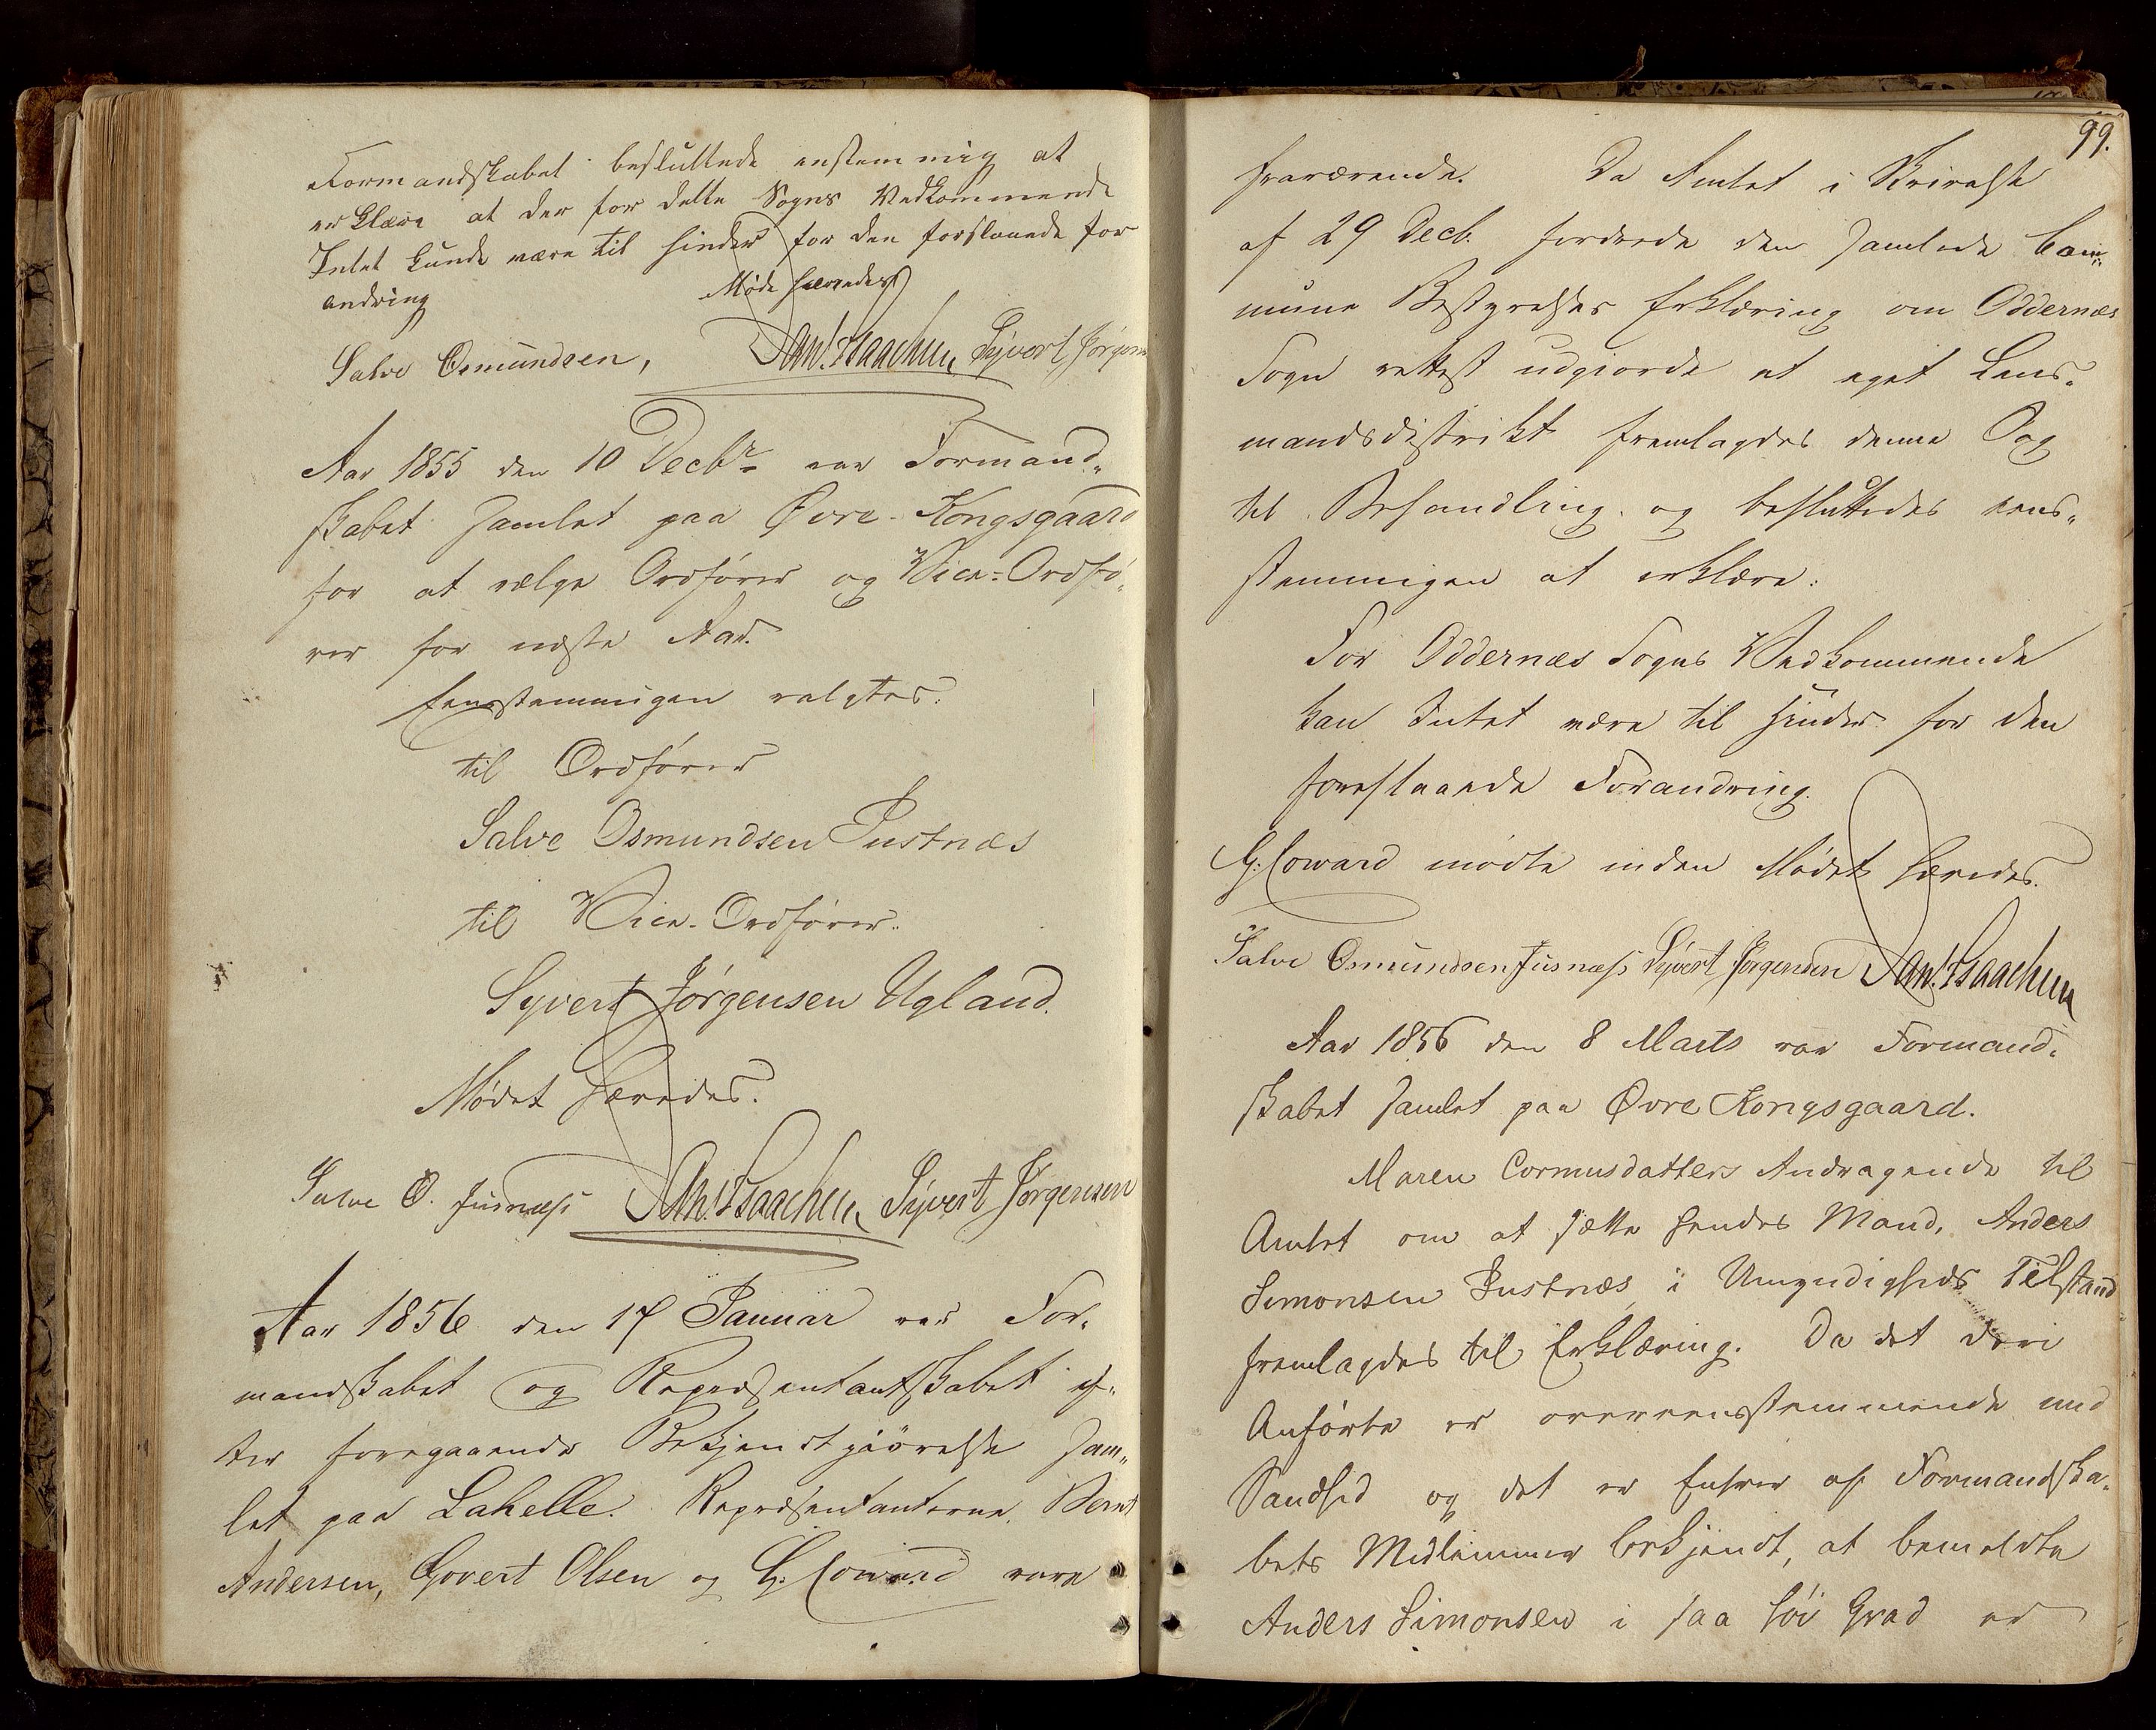 Formandskabet besluttede enstemmig at
erklære at der for dette Sogns Vedkommende
Intet kunde være til hinder for den forslaaede for
andring
Møde hævedes
Salve Osmundsen, Dan. Isaachsen Syvert Jörgens
Aar 1855 den 10 Decbr var Formand„
skabet samlet paa Øvre-Kongsgaard
for at vælge Ordfører og Vice-Ordfø„
rer for næste Aar.
Eensstemmigen valgtes:
til Ordfører
Salve Osmundsen Justnæs
til Vice-Ordfører.
Syvert Jørgensen Ugland.
Mødet hævedes.
Salve O. Jusnæss Dan. Isaachsen Syvert Jörgensen
Aar 1856 den 17 Januar var For„
mandskabet og Repræsentantskabet ef„
ter foregaaende Bekjendtgjörelse sam„
let paa Lahelle. Repræsentanterne Bernt
Andersen, Govert Olsen og G. Coward vare
99.
fraværende. Da Amtet i Skrivelse
af 29 Decb. fordrede den samlede Com„
mune Bestyrelses Erklæring om Oddernæs
Sogn rettest udgjorde et eget Lens„
mandsdistrikt fremlagdes denne Sag
til Behandling og besluttedes eens„
stemmigen at erklære:
For Oddernæs Sogns Vedkommende
kan Intet være til Hinder for den
foreslaaede Forandring.
G. Coward mødte inden Mødet hævedes.
Salve Osmundsen Jusnæss Syvert Jörgensen Dan. Isaachsen
Aar 1856 den 8 Marts var Formand„
skabet samlet paa Øvre Kongsgaard.
Maren Cormusdatters Andragende til
Amtet om at sætte hendes Mand, Anders
Simonsen Justnæs i Umyndigheds Tilstand
fremlagdes til Erklæring. Da det deri
Anförte er overeensstemmende med
Sandhed og det er Enhver af Formandska„
bets Medlemmer bekjendt, at bemeldte
Anders Simonsen i saa höi Grad er